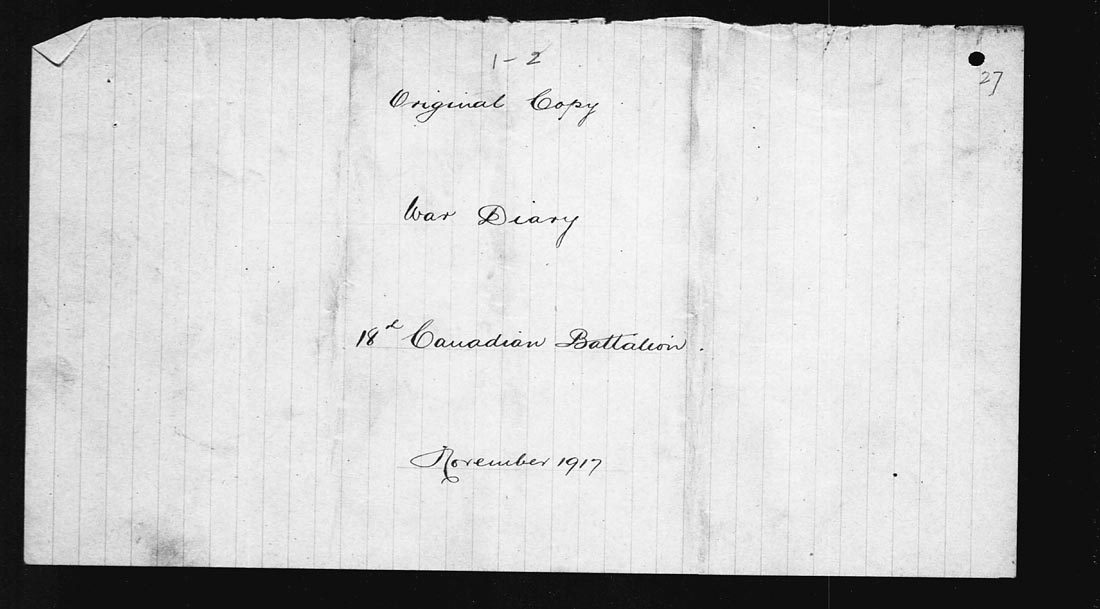 1-2
27
Original Copy
War Diary
18th Canadian Battalion.
November 1917